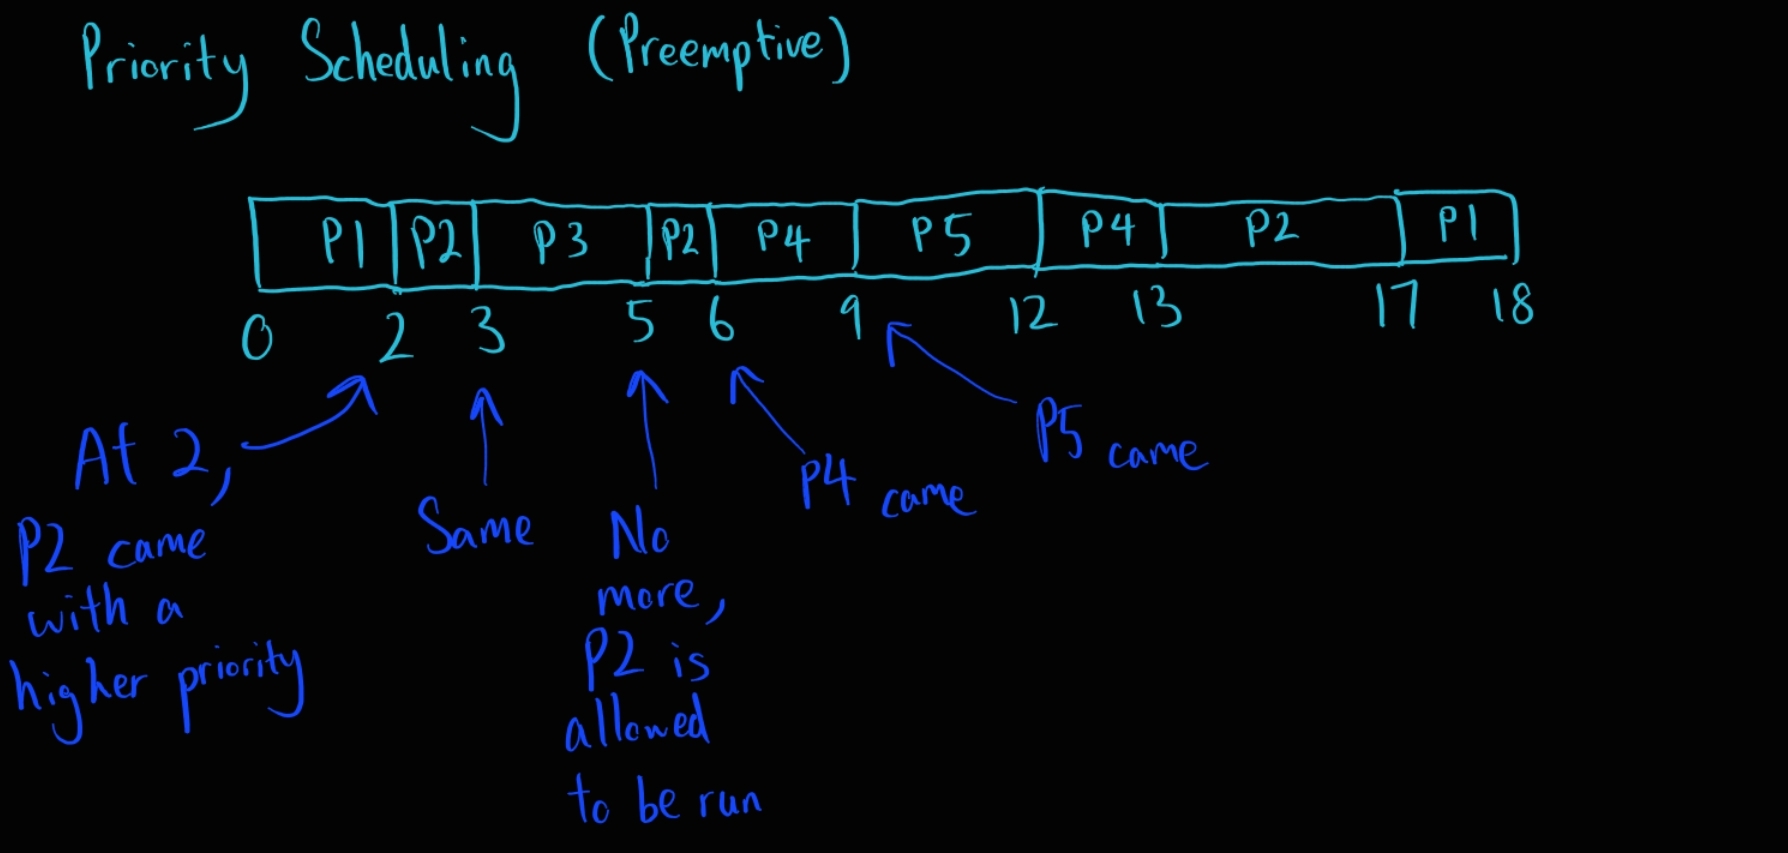 Priority Scheduling (Preemptive)
P1 P2 P3 P2 P4 P5 P4 P2 P1
0 2 3 5 6 9 12 13 17 18
At 2,
P2 came
with a
higher priority
Same
No
more,
P2 is
allowed
to be run
P4 came
P5 came